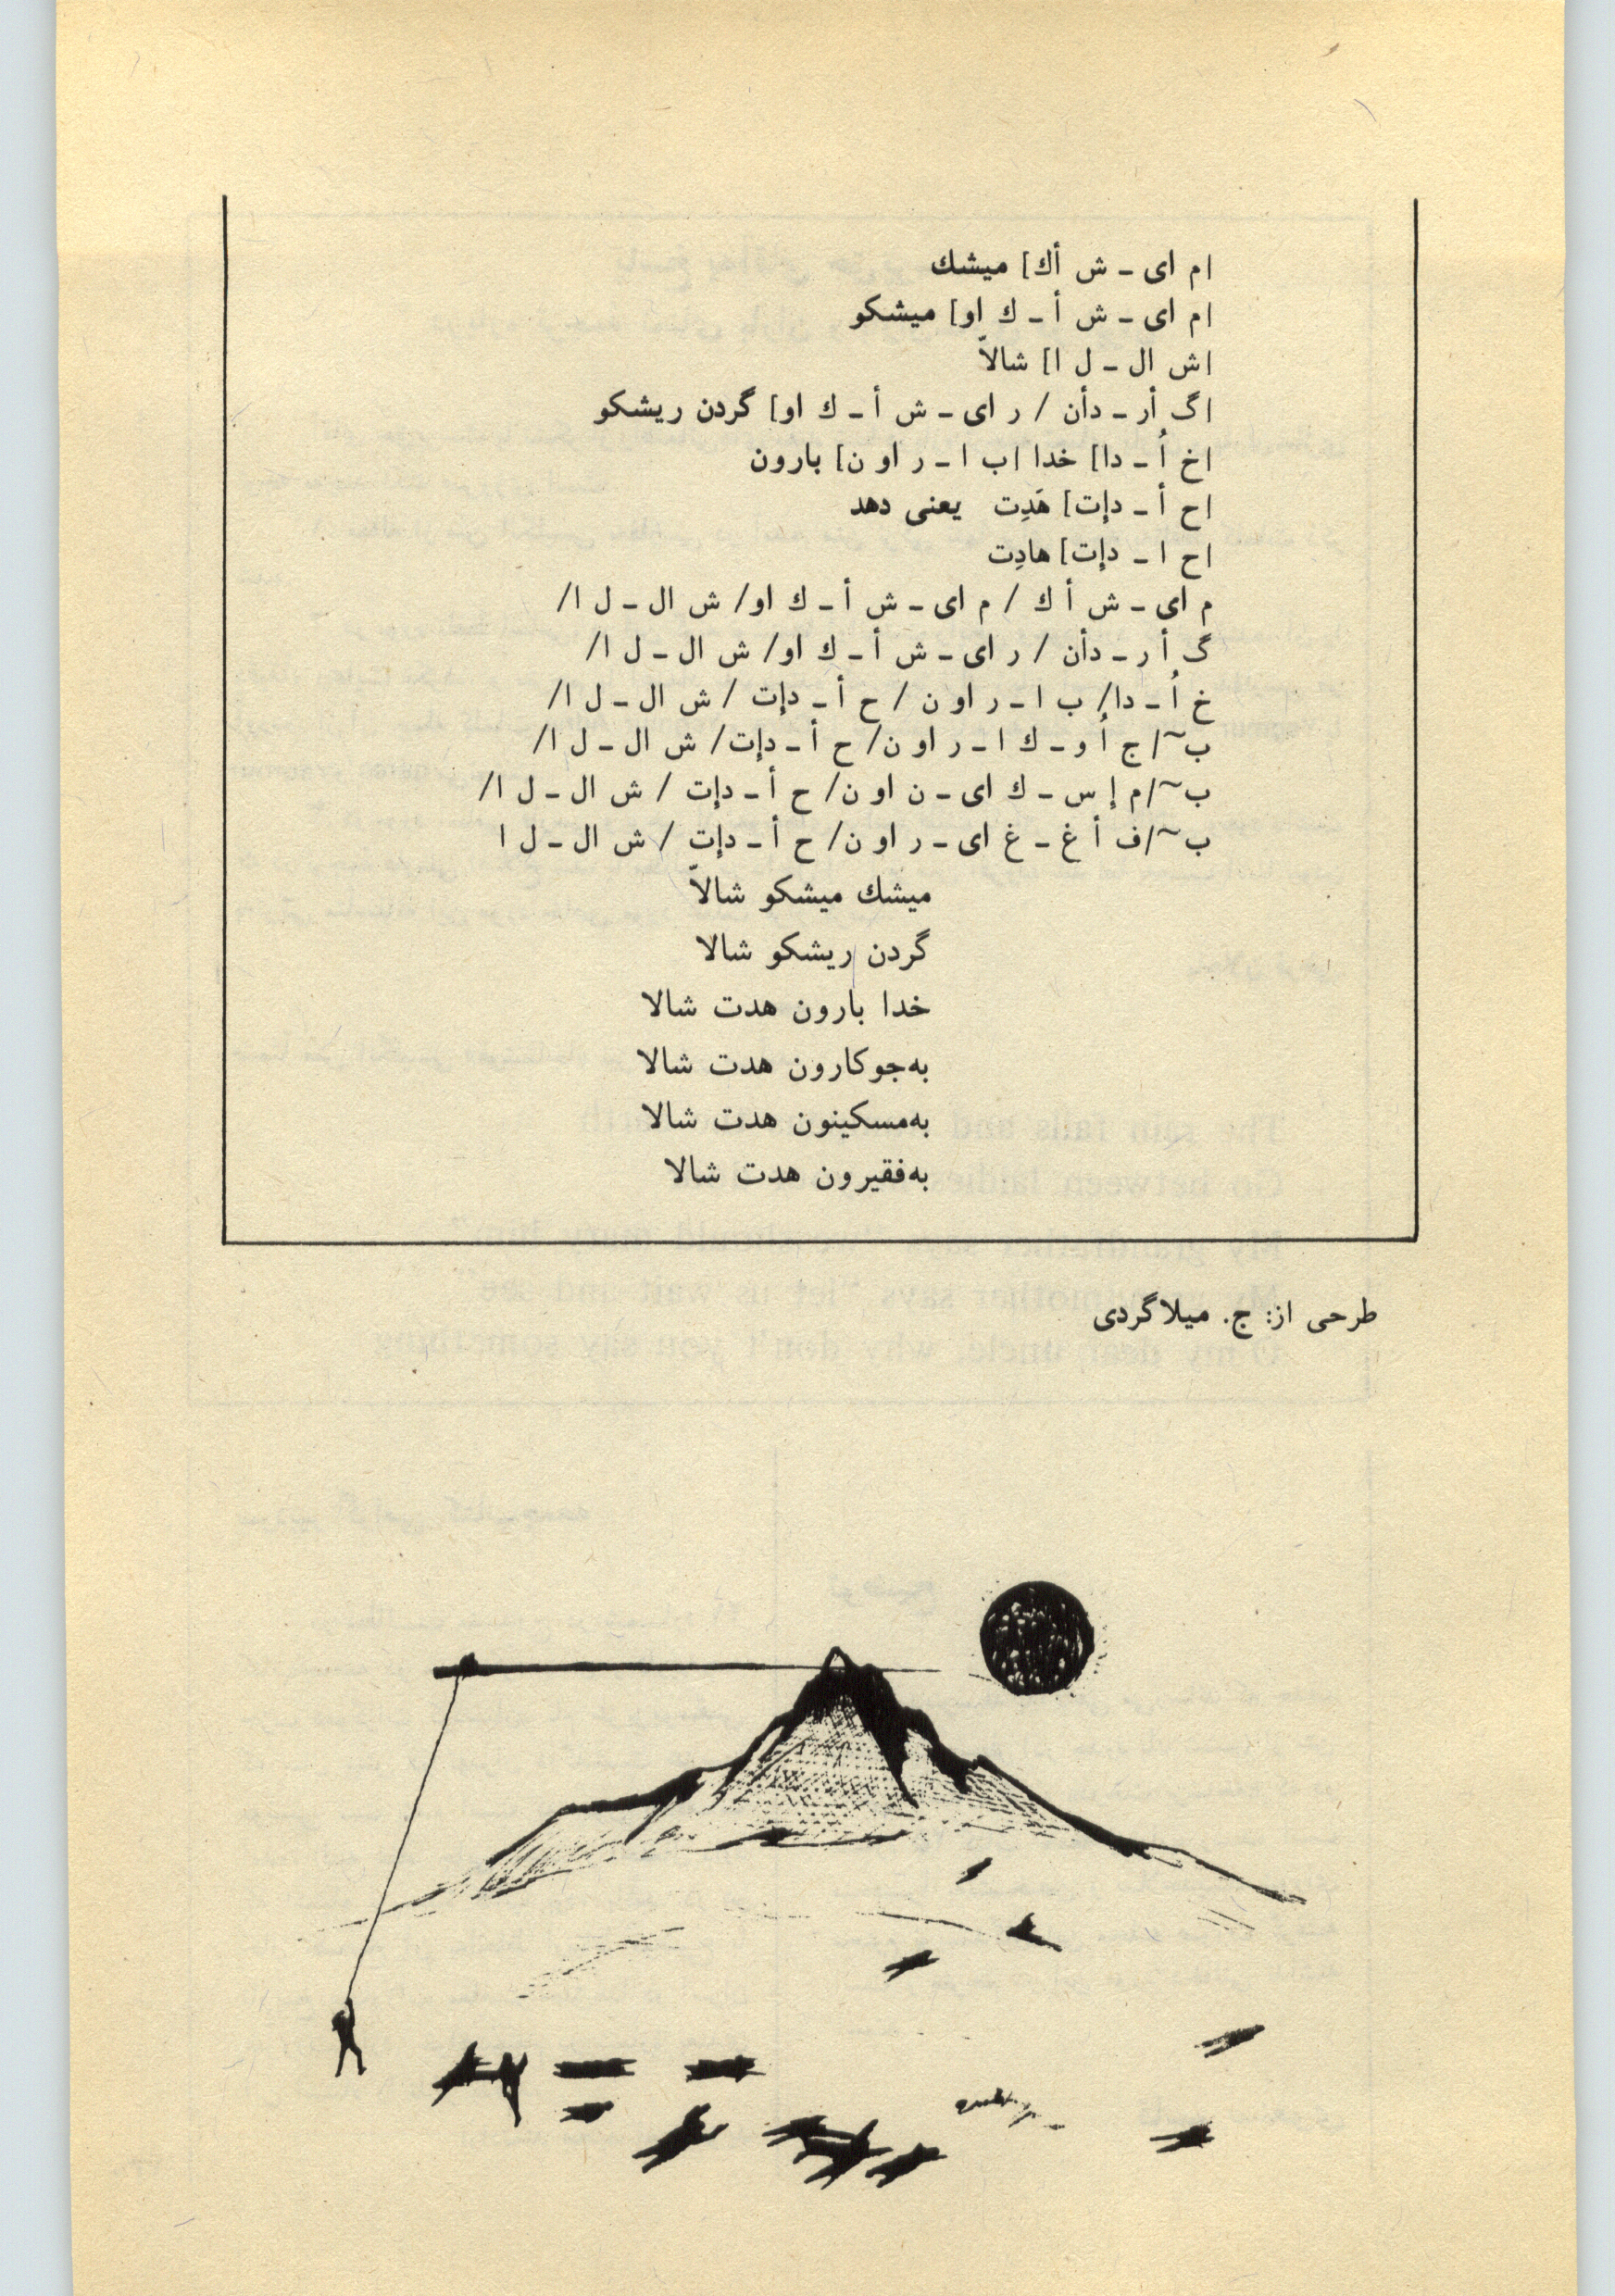 [م ای ـ ش أك] میشك
[م ای ـ ش أ ـ ك او] میشکو
[ش ال ـ ل ا] شالاّ
[گ أر ـ دأن / ر ای ـ ش أ ـ ك او] گردن ریشکو
[خ اُ ـ دا] خدا [ب ا ـ ر او ن] بارون
[ح أ ـ دإت] هَدِت یعنی دهد
[ح ا ـ دإت] هادِت
م ای ـ ش أ ك / م ای ـ ش أ ـ ك او/ ش ال ـ ل ا/
گ أ ر ـ دأن / ر ای ـ ش أ ـ ك او/ ش ال ـ ل ا/
خ اُ ـ دا/ ب ا ـ ر او ن / ح أ ـ دإت / ش ال ـ ل ا/
ب~/ ج اُ و ـ ك ا ـ ر او ن/ ح أ ـ دإت/ ش ال ـ ل ا/
ب~/م إ س ـ ك ای ـ ن او ن/ ح أ ـ دإت / ش ال ـ ل ا/
ب~/ف أ غ ـ غ ای ـ ر او ن/ ح أ ـ دإت / ش ال ـ ل ا
میشك میشکو شالاّ
گردن ریشکو شالا
خدا بارون هدت شالا
به‌جوکارون هدت شالا
به‌مسکینون هدت شالا
به‌فقیرون هدت شالا
طرحی از: ج. میلاگردی